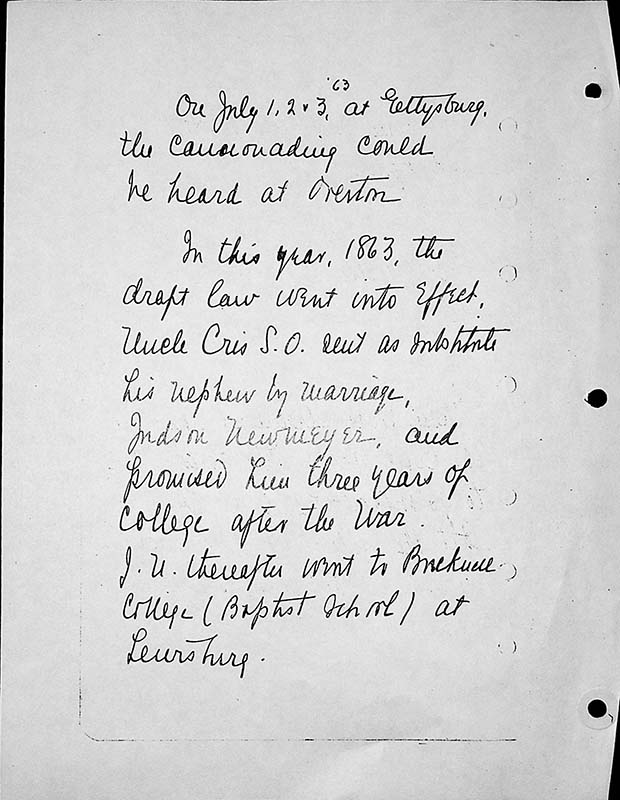 '63
On July 1, 2 & 3, at Gettysburg,
the cannonading could
be heard at Overton
In this year, 1863, the
draft law went into effect.
Uncle Cris S.O. sent as substitute
his nephew by marriage,
Judson Newmeyer, and
promised him three years of
college after the War.
J. N. thereafter went to Bucknell
College (Baptist School) at
Lewisburg.